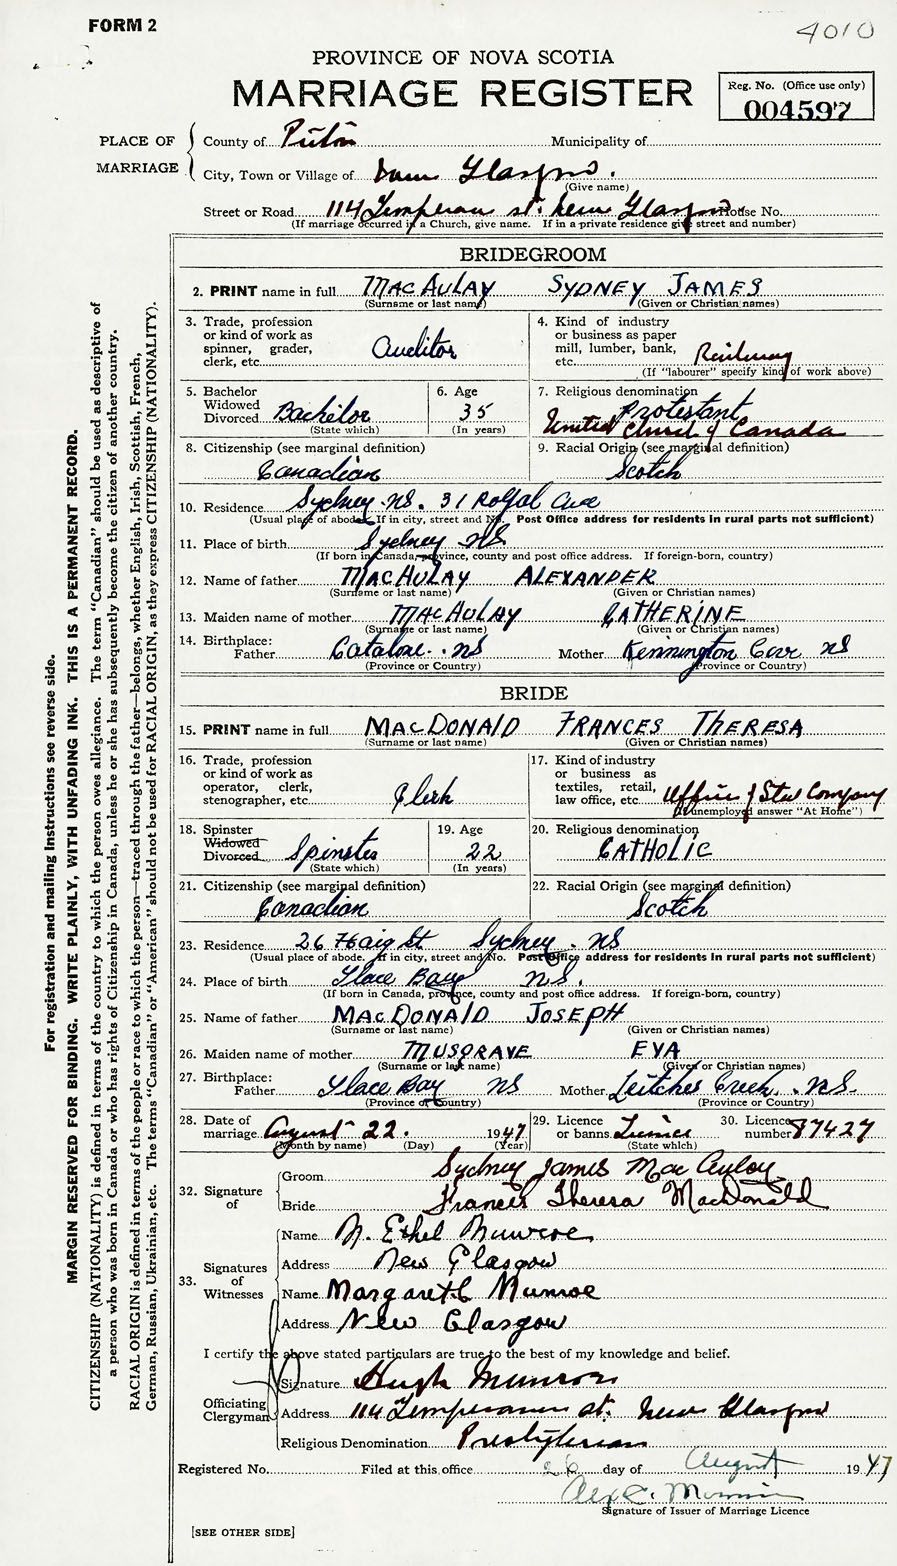 FORM 2
4010
PROVINCE OF NOVA SCOTIA
MARRIAGE REGISTER
Reg. No. (Office use only)
004597
PLACE OF MARRIAGE
County of Pictou Municipality of
City, Town or Village of New Glasgow.
(Give name)
Street or Road 114 Temperance St. New Glasgow House No.
(If marriage occurred in a Church, give name. If in a private residence give street and number)
BRIDEGROOM
2. PRINT name in full MACAULAY SYDNEY JAMES
(Surname or last name) (Given or Christian names)
3. Trade, profession or kind of work as spinner, grader, clerk, etc. Auditor
4. Kind of industry or business as paper mill, lumber, bank, etc. Railway
(If "labourer" specify kind of work above)
5. Bachelor Widowed Divorced Bachelor
(State which)
6. Age 35
(In years)
7. Religious denomination Protestant
United Church of Canada
8. Citizenship (see marginal definition) Canadian
9. Racial Origin (see marginal definition) Scotch
10. Residence Sydney NS. 31 Royal Ave
(Usual place of abode. If in city, street and No. Post Office address for residents in rural parts not sufficient)
11. Place of birth Sydney NS
(If born in Canada, province, county and post office address. If foreign-born, country)
12. Name of father MACAULAY ALEXANDER
(Surname or last name) (Given or Christian names)
13. Maiden name of mother MACAULAY CATHERINE
(Surname or last name) (Given or Christian names)
14. Birthplace: Father Catalone NS Mother Kennington Cove NS
(Province or Country) (Province or Country)
BRIDE
15. PRINT name in full MACDONALD FRANCES THERESA
(Surname or last name) (Given or Christian names)
16. Trade, profession or kind of work as operator, clerk, stenographer, etc. Clerk
17. Kind of industry or business as textiles, retail, law office, etc. Office of Steel Company
(If unemployed answer "At Home")
18. Spinster Widowed Divorced Spinster
(State which)
19. Age 22
(In years)
20. Religious denomination CATHOLIC
21. Citizenship (see marginal definition) Canadian
22. Racial Origin (see marginal definition) Scotch
23. Residence 26 Haig St Sydney. NS
(Usual place of abode. If in city, street and No. Post Office address for residents in rural parts not sufficient)
24. Place of birth Glace Bay NS.
(If born in Canada, province, county and post office address. If foreign-born, country)
25. Name of father MACDONALD JOSEPH
(Surname or last name) (Given or Christian names)
26. Maiden name of mother MUSGRAVE EVA
(Surname or last name) (Given or Christian names)
27. Birthplace: Father Glace Bay NS Mother Leitches Creek. NS.
(Province or Country) (Province or Country)
28. Date of marriage August 22. 1947
(Month by name) (Day) (Year)
29. Licence or banns License
(State which)
30. Licence number 87427
32. Signature of
Groom Sydney James MacAulay
Bride Frances Theresa MacDonald
33. Signatures of Witnesses
Name N. Ethel Munroe
Address New Glasgow
Name Margaret C Munroe
Address New Glasgow
I certify the above stated particulars are true to the best of my knowledge and belief.
Officiating Clergyman
Signature Hugh Munroe
Address 114 Temperance St. New Glasgow
Religious Denomination Presbyterian
Registered No. Filed at this office 26 day of August 1947
Signature of Issuer of Marriage Licence
[SEE OTHER SIDE]
For registration and mailing instructions see reverse side.
MARGIN RESERVED FOR BINDING. WRITE PLAINLY, WITH UNFADING INK. THIS IS A PERMANENT RECORD.
CITIZENSHIP (NATIONALITY) is defined in terms of the country to which the person owes allegiance. The term "Canadian" should be used as descriptive of
a person who was born in Canada or who has rights of Citizenship in Canada, unless he or she has subsequently become the citizen of another country.
RACIAL ORIGIN is defined in terms of the people or race to which the person—traced through the father—belongs, whether English, Irish, Scottish, French,
German, Russian, Ukrainian, etc. The terms "Canadian" or "American" should not be used for RACIAL ORIGIN, as they express CITIZENSHIP (NATIONALITY).